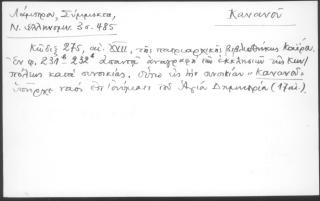 Λάμπρου, Σύμμικτα,
Ν. Ελληνομν. 3 σ. 485
Κανανοῦ
Κῶδιξ 275, αἰ. XVII, τῆς πατριαρχικῆς βιβλιοθήκης Καΐρου.
Ἐν φ. 231β 232β ἀπαντᾷ ἀναγραφὴ τῶν ἐκκλησιῶν τῆς Κων/
πόλεως κατὰ συνοικίας. οὕτω εἰς τὴν συνοικίαν "Κανανοῦ"
ὑπῆρχε ναὸς ἐπ' ὀνόματι τοῦ Ἁγίου Δημητρίου (17 αἰ.).